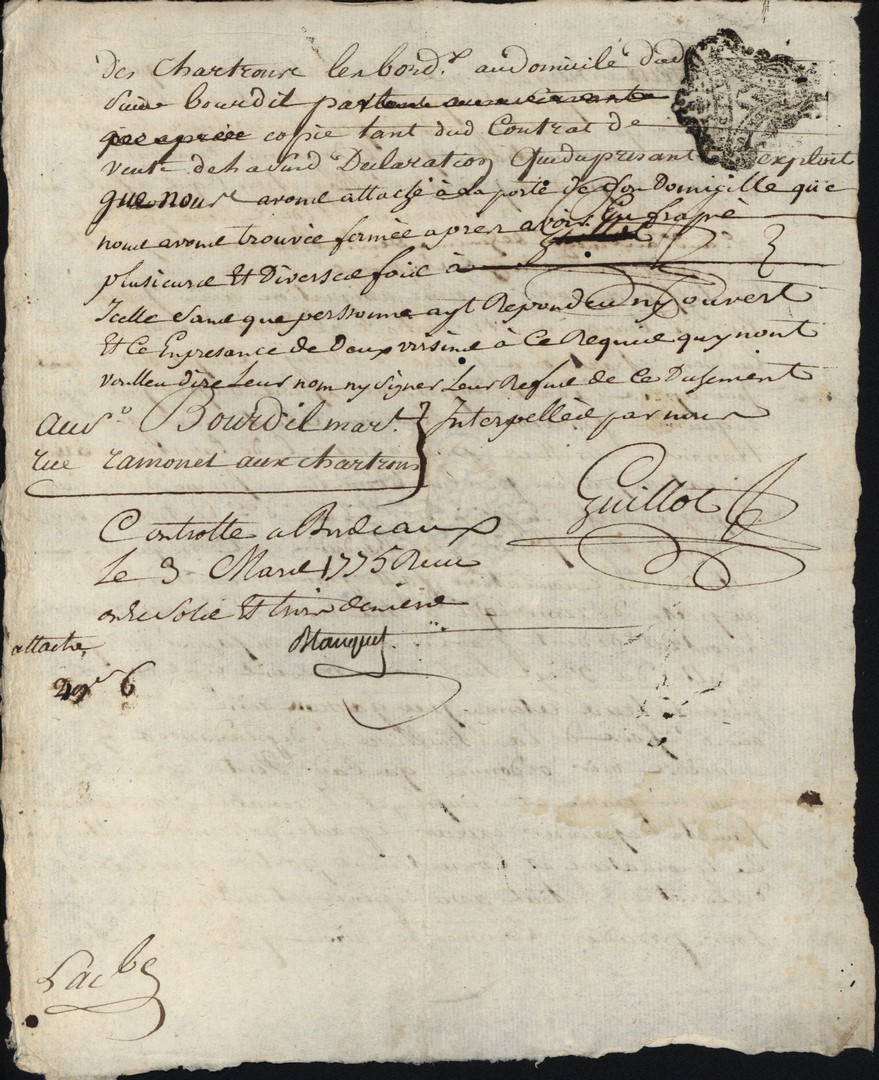 des Chartrons les bord.x audomicile dud
Sieur bourdil
copie tant dud Contrat de
vente de lasusd Declaration Que du presant exploit
que nous avons attaché à la porte de son Domicille que
nous avons trouvée fermée apres avoir frapé
plusieurs Et Diverses fois à
Icelle sans que personne ayt Repondeu ny ouvert
Et Ce En presance de Deux voisins à Ce Requis quy nont
voulleu dire Leur nom ny signer Leur Refus de Ce Dusement
Interpellés par nous
au sr Bourdil mar.t
rue ramonet aux chartrons
Guillot
Controlle a Bordeaux
Le 3 Mars 1775 Receu
onze Sols Et trois deniers
attache